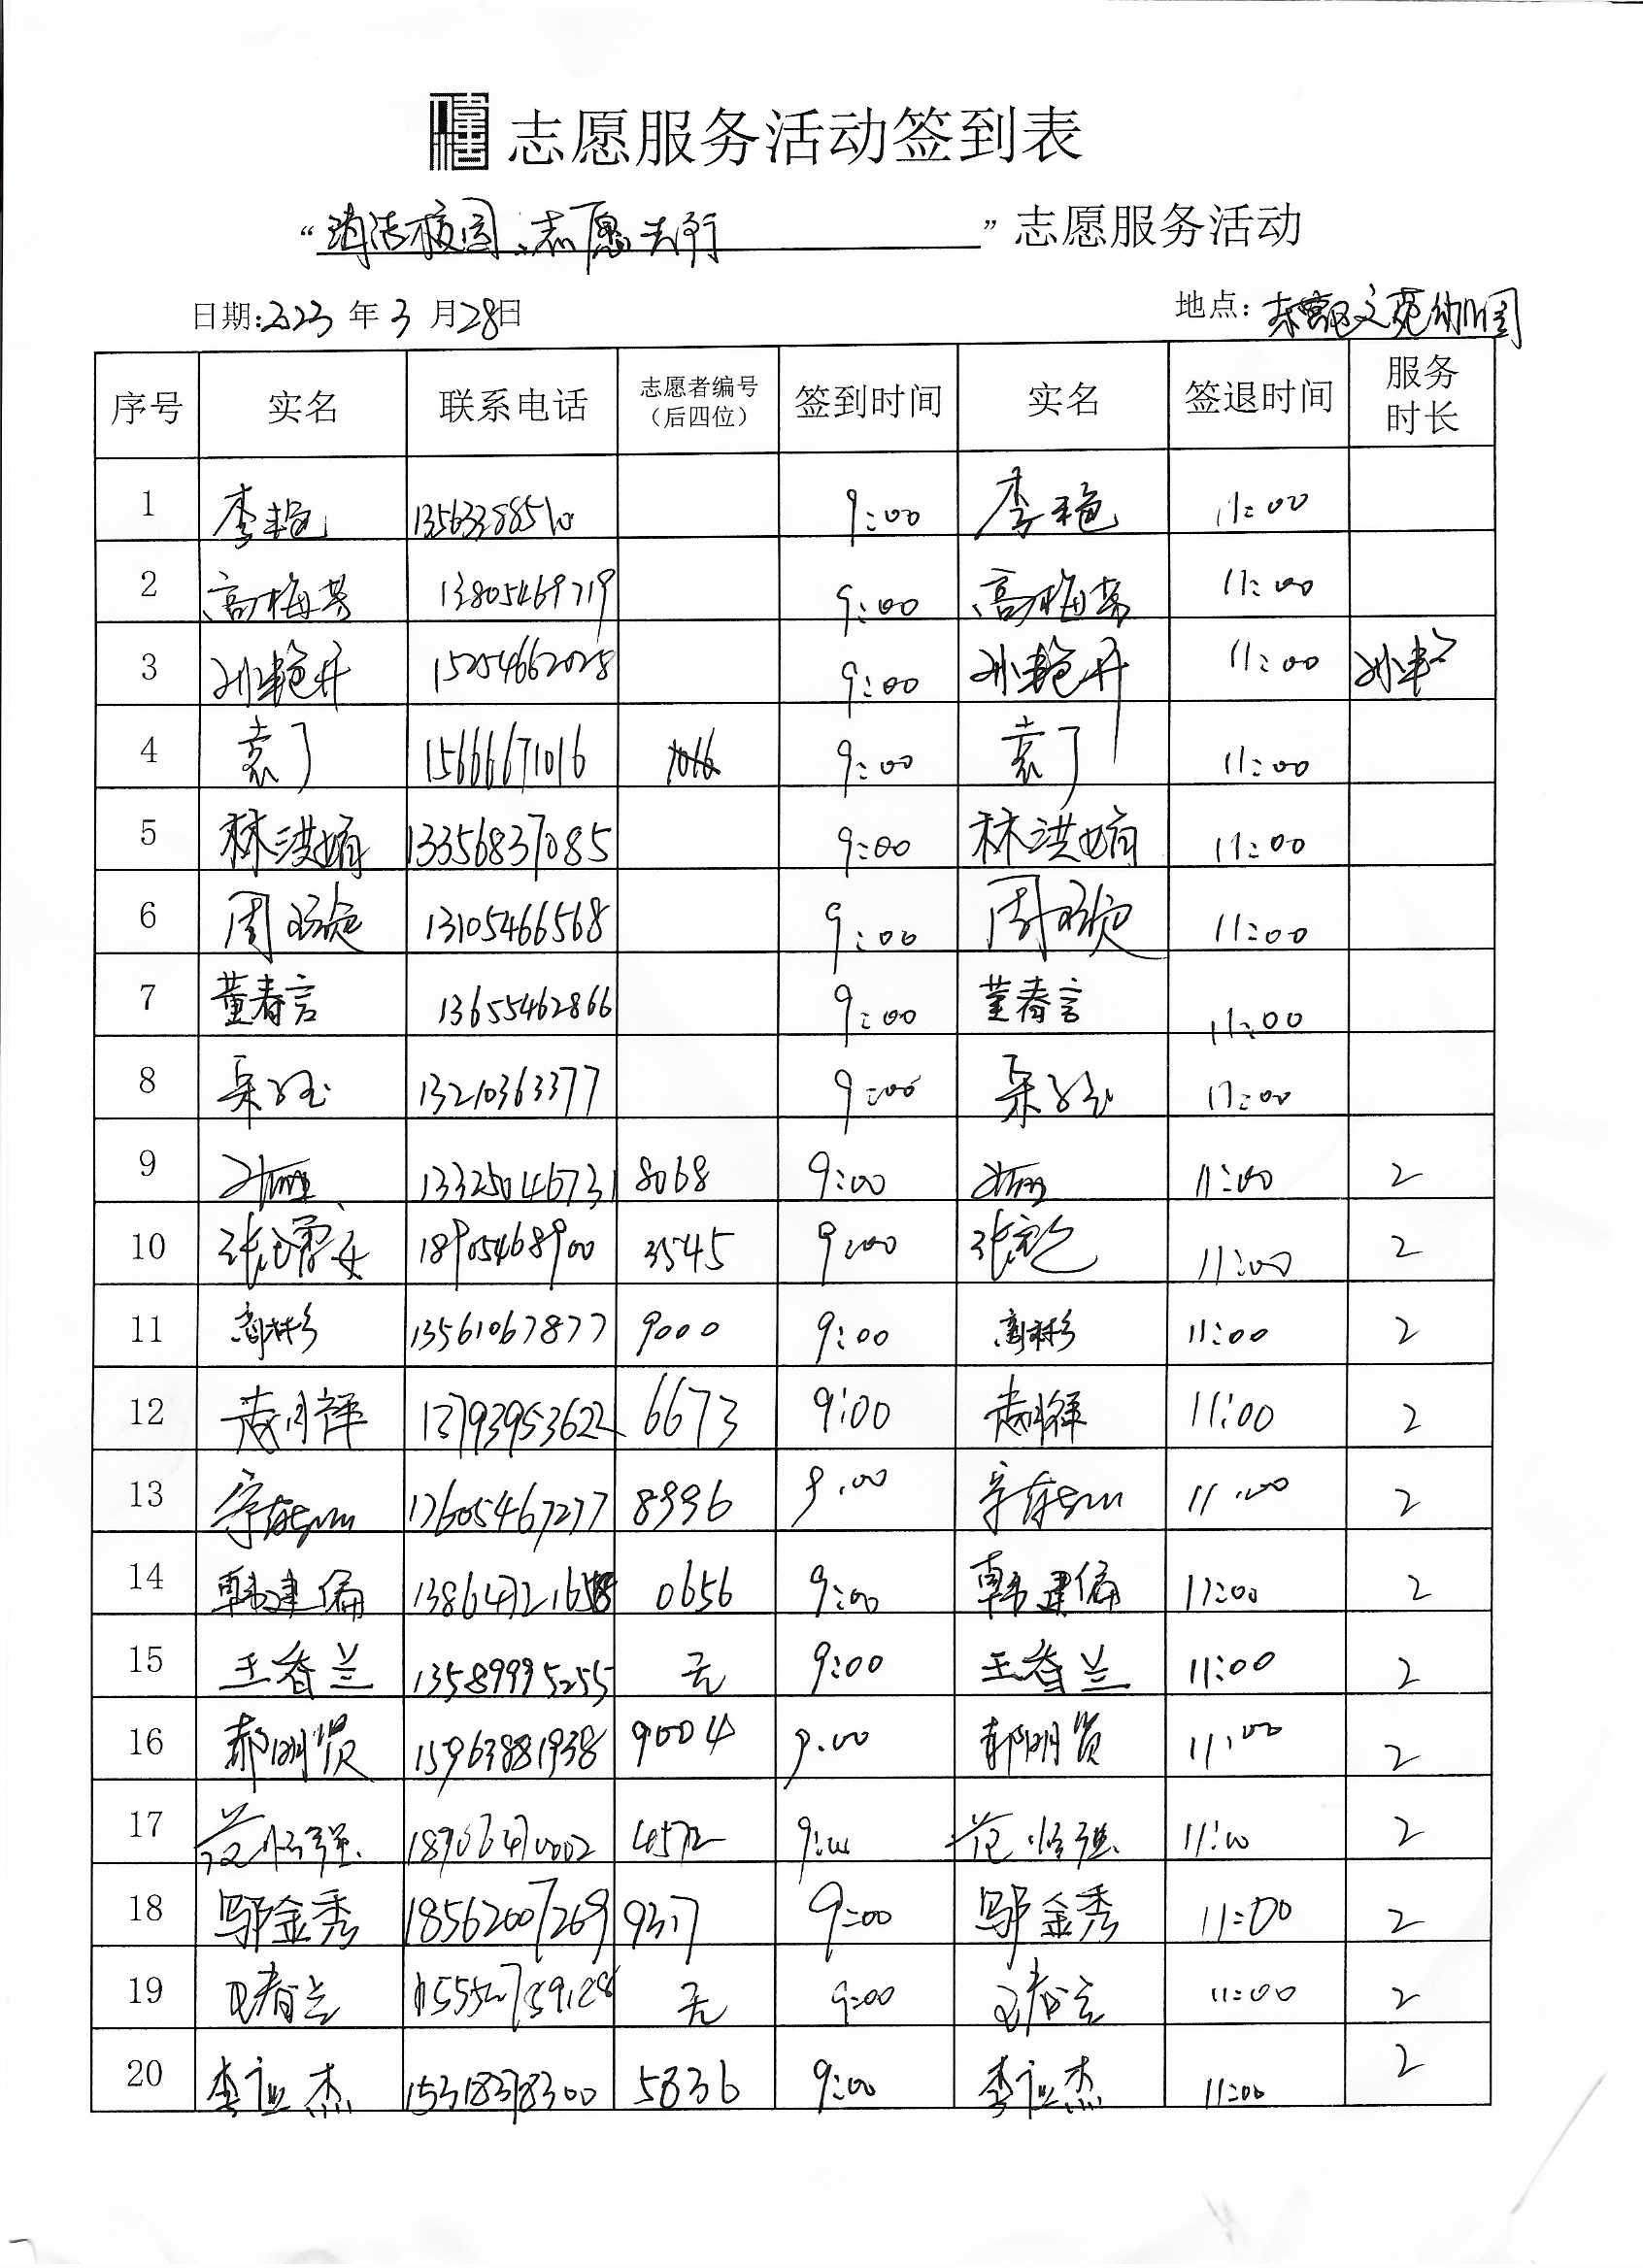 志愿服务活动签到表
“清洁校园、志愿先行”志愿服务活动
日期:2023年3月28日 地点:东营区文苑幼儿园
序号 实名 联系电话 志愿者编号（后四位） 签到时间 实名 签退时间 服务时长
1 李艳 13563388510 9:00 李艳 11:00
2 高梅芳 13805469719 9:00 高梅芳 11:00
3 孙艳丹 15254662028 9:00 孙艳丹 11:00
4 袁丁 15666671016 9:00 袁丁 11:00
5 林洪娟 13356837085 9:00 林洪娟 11:00
6 周 13105466568 9:00 周 11:00
7 董春言 13655462866 9:00 董春言 11:00
8 13210363377 9:00 11:00
9 13325046731 8068 9:00 11:00 2
10 张 18905468900 3545 9:00 张 11:00 2
11 商彬 13561067877 9000 9:00 商彬 11:00 2
12 13793953622 6673 9:00 11:00 2
13 17605467277 8996 9:00 11:00 2
14 韩建偏 1386472165 0656 9:00 韩建偏 11:00 2
15 王春兰 13589995255 无 9:00 王春兰 11:00 2
16 郝明贤 15963881938 9004 9:00 郝明贤 11:00 2
17 范 强 18906470002 4572 9:00 范 强 11:00 2
18 邬金秀 18562007269 9317 9:00 邬金秀 11:00 2
19 春兰 无 9:00 11:00 2
20 李 杰 15318378300 5836 9:00 李 杰 11:00 2